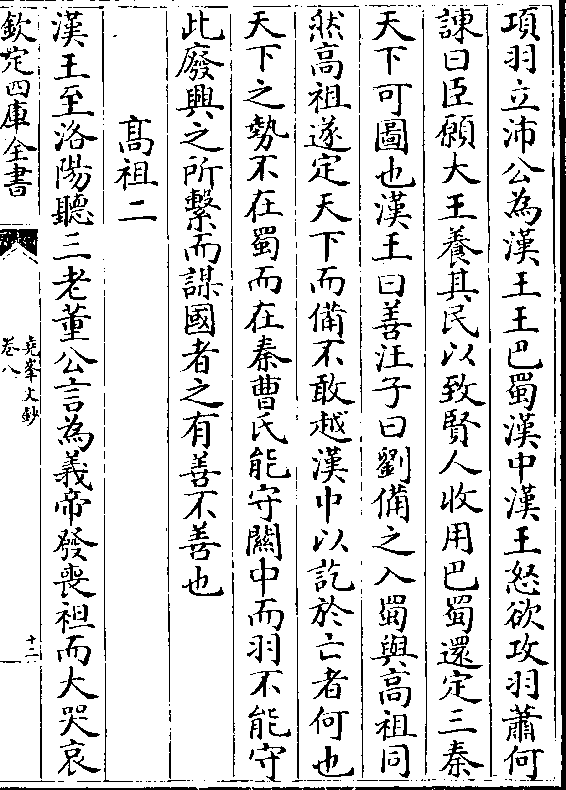 項羽立沛公為漢王王巴蜀漢中漢王怒欲攻羽蕭何
諫曰臣願大王養其民以致賢人收用巴蜀還定三秦
天下可圖也漢王曰善汪子曰劉備之入蜀與高祖同
然高祖遂定天下而備不敢越漢中以訖於亡者何也
天下之勢不在蜀而在秦曹氏能守關中而羽不能守
此廢興之所繫而謀國者之有善不善也
高祖二
漢王至洛陽聽三老董公言為義帝發喪袒而大哭哀
欽定四庫全書
堯峯文鈔
卷八
十二